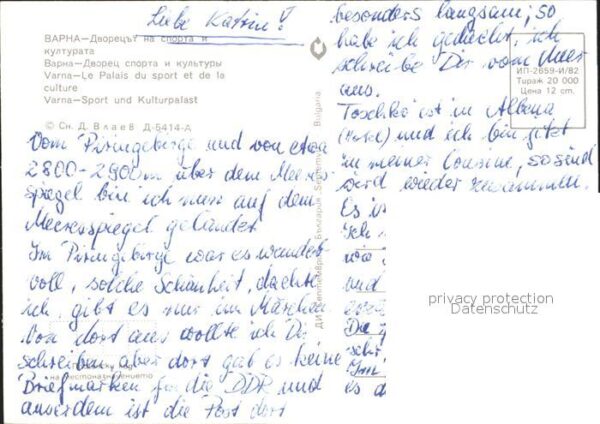 Liebe Katrin!
ВАРНА—Дворецът на спорта и
културата
Варна—Дворец спорта и культуры
Varna—Le Palais du sport et de la
culture
Varna—Sport und Kulturpalast
© Сн. Д. Влаев Д-5414-А
Vom Piringebirge und von etwa
2800-2900m über dem Meeres-
spiegel bin ich nun auf dem
Meeresspiegel gelandet.
Im Piringebirge war es wunder-
voll, solche Schönheit, dachte
ich, gibt es nur im Märchen.
Von dort aus wollte ich Dir
schreiben aber dort gab es keine
Briefmarken für die DDR und
ausserdem ist die Post dort
besonders langsam; so
habe ich gedacht, ich
schreibe Dir vom Meer
aus.
Toschko ist in Albena
(Hotel) und ich bin jetzt
in meiner Cousine, so sind
wird wieder zusammen.
Es is
Ich
wie
und
Die
schr
Im
es d
ИП-2659-И/82
Тираж 20 000
Цена 12 cm.
ДИ „Септември“ България Septemvri Bulgaria
на местоназначението
privacy protection
Datenschutz